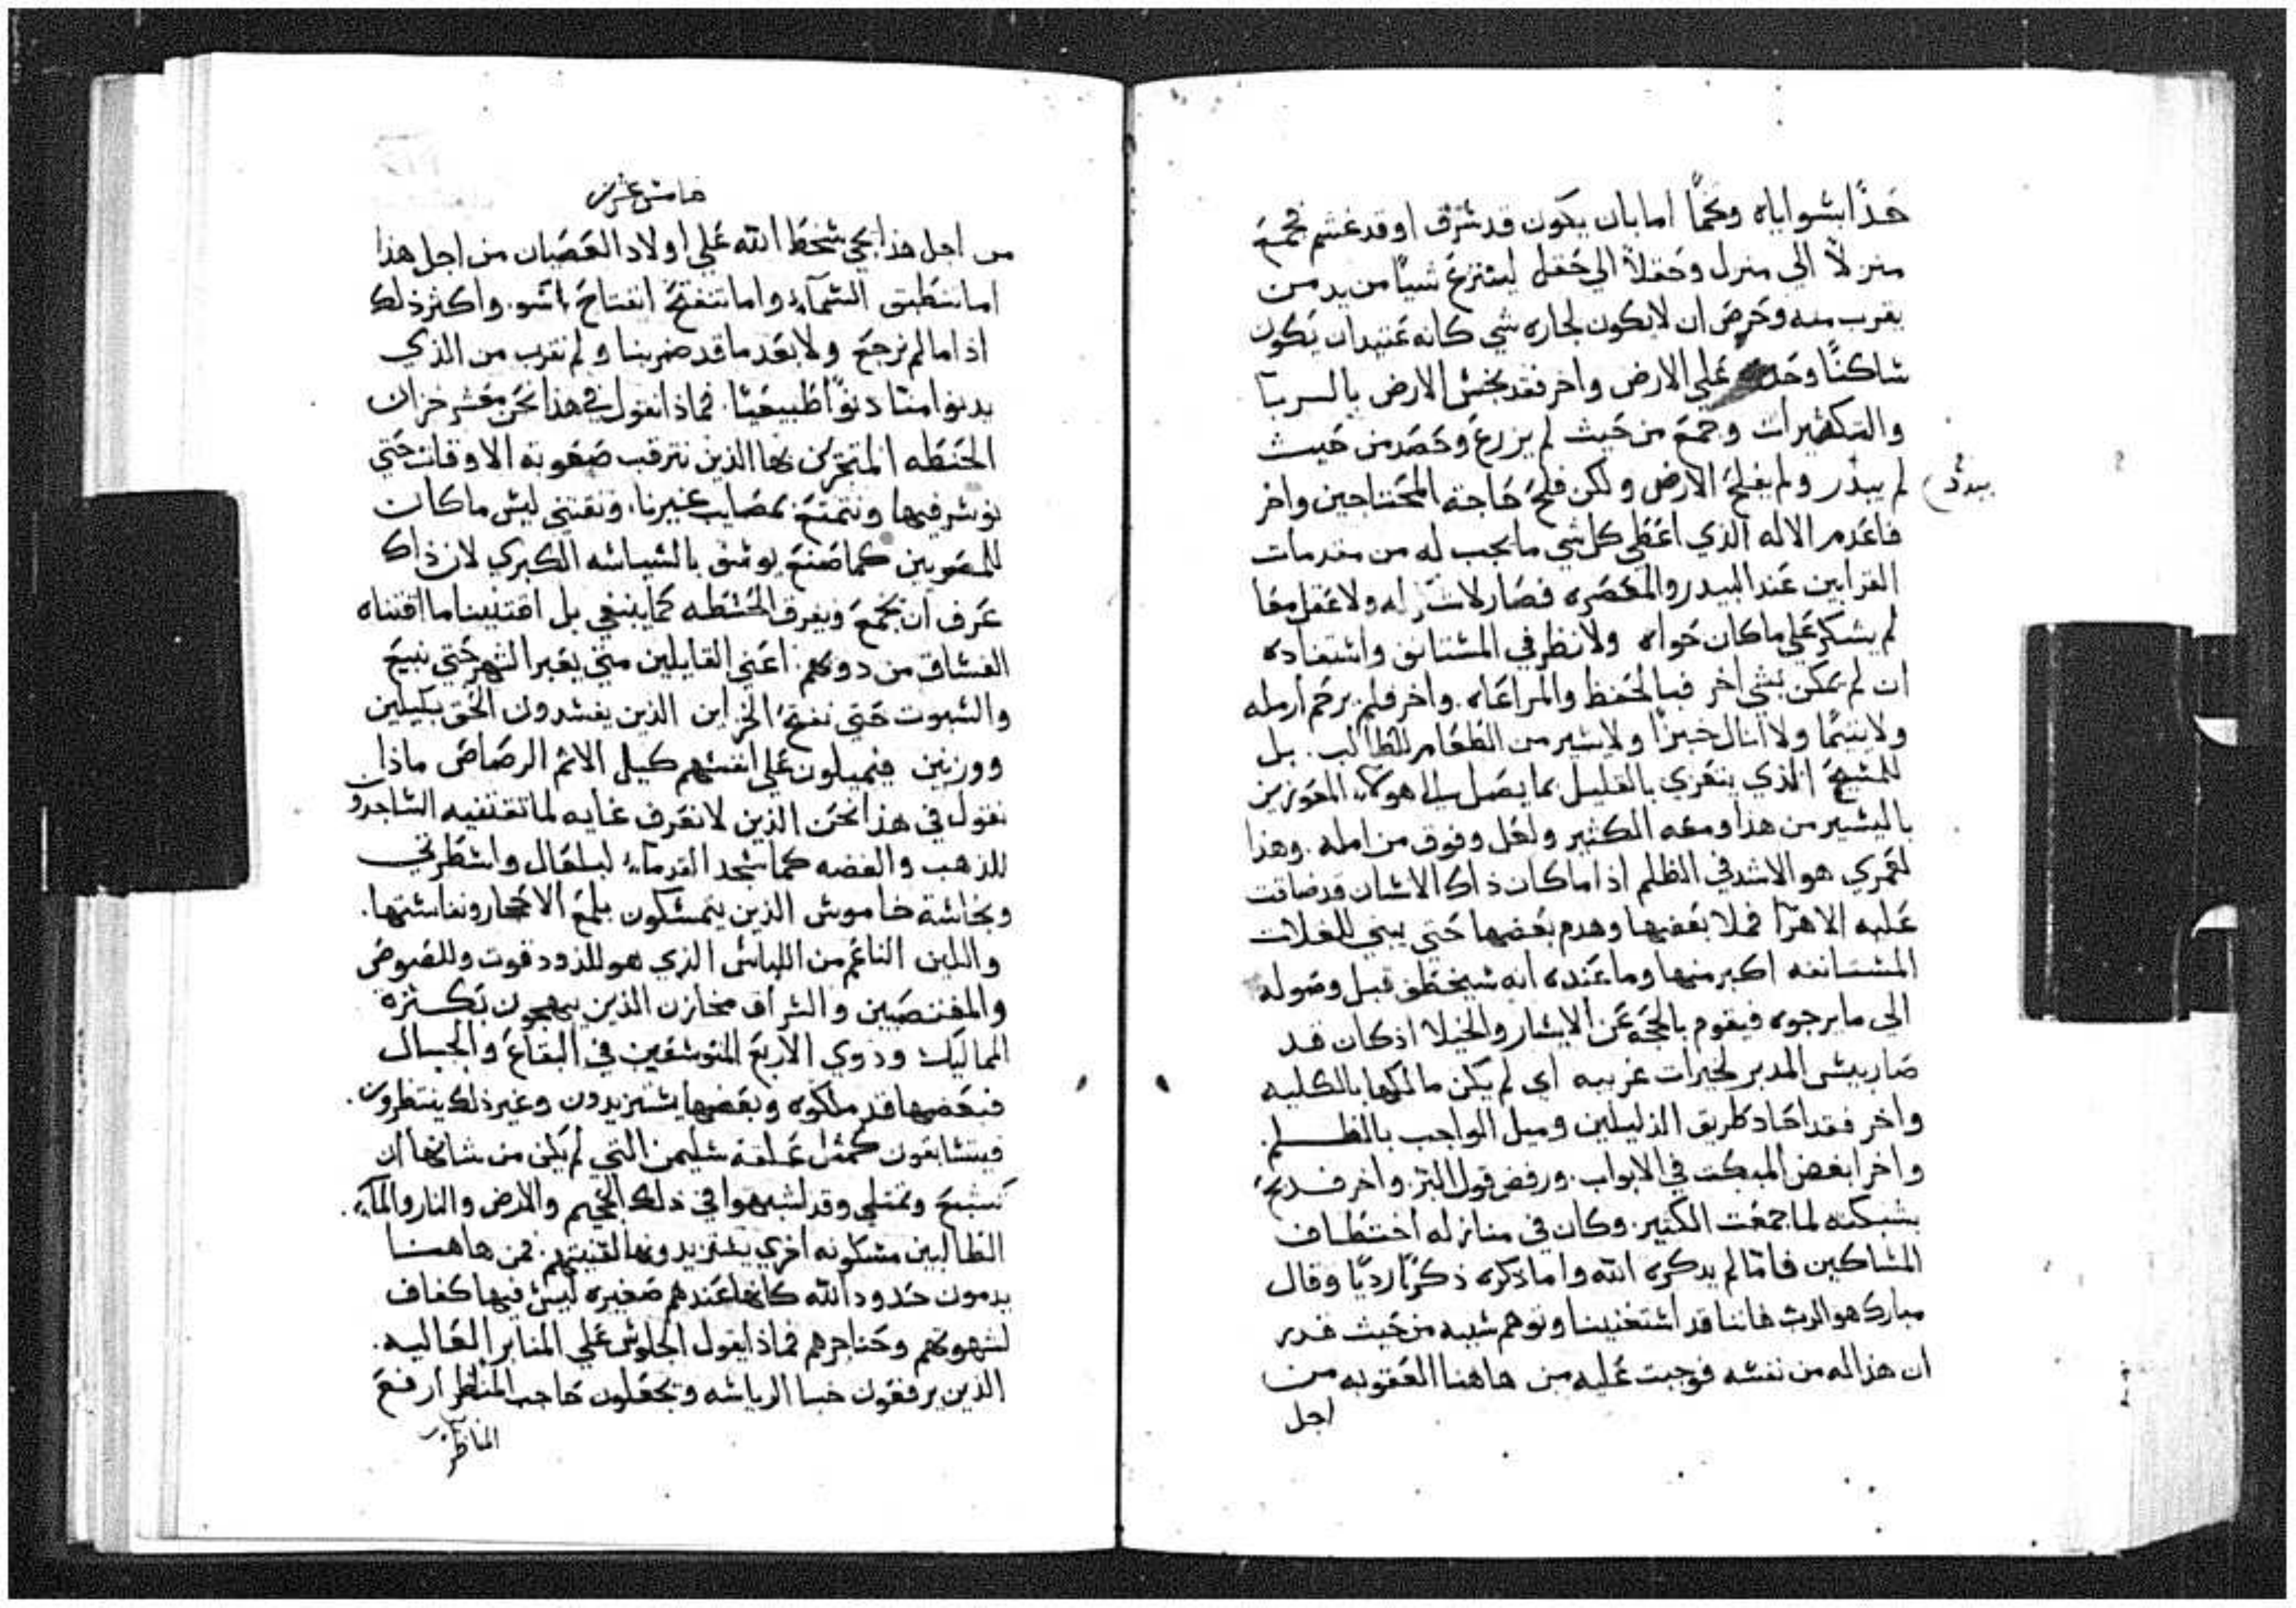 حَدًّا بسوا اياه وتخمًا اما بان يكون قد سَرَق او قد غشم فجمع
منزلاً الي منزل وحَقلاً الي حَقل لينتزع شيأ من يد من
يقرب منه وحَرص ان لا يكون لجاره شي كانه عَتيد ان يكون
ساكنًا وحده عَلي الارض واخر فقد نجس الارض بالربا
والتكثيرات وجمع من حَيث لم يزرع وحَصد من حَيث
لم يبدر ولم يفلح الارض ولكن فلح حَاجة المحتاجين واخر
بيدر
فاعَدم الاله الذي اعَطي كل شي ما يجب له من مقدمات
القرابين عَند البيدر والمعَصره فصَار لا شكر له ولا عَقل معَا
لم يشكر عَلي ما كان حَواه ولا نظر في المستانف واستعَاده
ان لم يمكن بشي اخر فبالحَفظ والمراعَاه. واخر فلم يرحَم ارمله
ولا يتيمًا ولا انال خبزًا ولا يسير من الطَعَام للطَالب. بل
للمسيحَ الذي يتغدي بالقليل بما يصَل الي هولاء المعَوزين
باليسير من هذا ومعَه الكثير ولعَل وفوق من امله. وهذا
لعَمري هو الاشد في الظلم اذا ما كان ذاك الانسان قد ضاقت
عَليه الاهرا فملا بعَضها وهدم بعَضها حَتي يبني للغلات
المستانفه اكبر منها وما عَنده انه سيخطَف قبل وصَوله
الي ما يرجوه فيقوم بالحجَه عَن الايسار والخيلا اذ كان قد
صَار بيس المدبر لخيرات غريبه اي لم يكن مالكها بالكليه
واخر فقد احَاد طَريق الذليلين وميل الواجب بالظلم.
واخر ابغض المبكت في الابواب. ورفض قول البر. واخر فذبح
بشبكته لما جمعَت الكثير. وكان في منازله اختطَاف
المساكين فاما لم يدكره الله واما دكره ذكرًا رديًا وقال
مبارك هو الرب فاننا قد استغنينا وتوهم شبيه من حَيث قدر
ان هذا له من نفسه فوجبت عَليه من هاهنا العَقوبه من
اجل
خامس عشرين
من اجل هذا يجي سخط الله عَلي اولاد العَصيان من اجل هذا
اما تنطَبق السماء واما تنفتح انفتاحَ باسو. واكثر ذلك
اذا ما لم نرجعَ ولا بعَد ما قد ضربنا ولم نقرب من الذي
يدنوا منا دنوًا طَبيعَيًا. فماذا نقول في هذا نحَن معَشر خزان
الحَنطَه المتجرين بها الذين نترقب صَعَوبة الاوقات حَتي
نوسر فيها ونتمتعَ بمصَايب غيرنا. ونقتني ليس ما كان
للمصَريين كما صَنعَ يوسف بالسياسه الكبري لان ذاك
عَرف ان يجمعَ ويعرف الحَنطَه كما ينبغي بل اقتنينا ما اقتناه
الفساق من دونهم. اعَني القايلين متي يعَبر الشهر حَتي نبيعَ
والسبوت حَتي نفتح الخزاين الذين يفسدون الحَق بكيلين
ووزنين فيميلون عَلي انفسهم كيل الاثم الرصَاصَ ماذا
نقول في هذا نحَن الذين لا نعَرف غايه لما نقتنيه الساجدون
للذهب والفضه كما سجد القدماء لبلعَال واسطَرتي
ونجاسة خاموس الذين يتمسكون بلمعَ الاحَجار ونفاستها.
واللين الناعَم من اللباس الذي هو للدود قوت وللصَوصَ
والمغتصَبين والسراق مخازن الذين يبهجون بكثرة
المماليك وذوي الاربعَ المتوسعَين في البقاعَ والجبال
فبعَضها قد ملكوه وبعَضها يستزيدون وغير ذلك ينتظرون.
فيتسابقون كمثل عَلقة سليمن التي لم يكن من شانها ان
تشبعَ وتمتلي وقد تشبهوا في ذلك الجحَيم والارض والنار والماء.
الطالبين مسكونه اخري يستزيدونها لقنيتهم. فمن هاهنا
يدمون حَدود الله كانها عَندهم صَغيره ليس فيها كفاف
لشهوتهم وحَناجرهم فماذا يقول الجلوس عَلي المنابر العَاليه.
الذين يرفعَون خبا الرياسه ويجعَلون حَاجب المناظر ارفعَ
المناظر